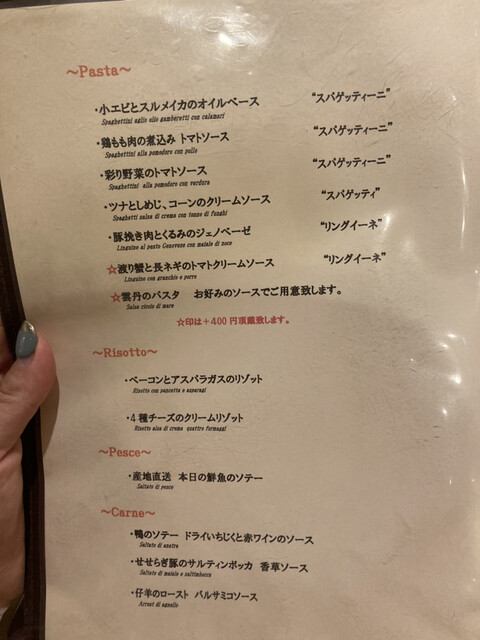 ～Pasta～
・小エビとスルメイカのオイルベース “スパゲッティーニ”
Spaghettini aglio olio gamberetti con calamari
・鶏もも肉の煮込み トマトソース “スパゲッティーニ”
Spaghettini alla pomodoro con pollo
・彩り野菜のトマトソース “スパゲッティーニ”
Spaghettini alla pomodoro con verdura
・ツナとしめじ、コーンのクリームソース “スパゲッティ”
Spaghetti salsa di crema con tonno di funghi
・豚挽き肉とくるみのジェノベーゼ “リングイーネ”
Linguine al pesto Genovese con maiale di noce
☆渡り蟹と長ネギのトマトクリームソース “リングイーネ”
Linguine con granchio e porro
☆雲丹のパスタ お好みのソースでご用意致します。
Salsa riccio di mare
☆印は＋400 円頂戴致します。
～Risotto～
・ベーコンとアスパラガスのリゾット
Risotto con pancetta e asparagi
・4 種チーズのクリームリゾット
Risotto alsa di crema quattro formaggi
～Pesce～
・産地直送 本日の鮮魚のソテー
Saltato di pesce
～Carne～
・鴨のソテー ドライいちじくと赤ワインのソース
Saltato di anatra
・せせらぎ豚のサルティンボッカ 香草ソース
Saltato di maiale a saltimbocca
・仔羊のロースト バルサミコソース
Arrost di agnello